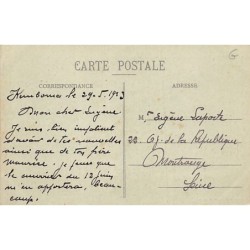 CARTE POSTALE
CORRESPONDANCE
ADRESSE
le 29.5.1923
Mon cher Eugène
Je suis bien impatient
d'avoir de tes nouvelles
ainsi que de ton frère
Maurice. Je pense que
le courrier du 12 juin
m'en apportera. Beau-
coup.
Mr Eugène Laporte
de la République
Montrouge
Seine